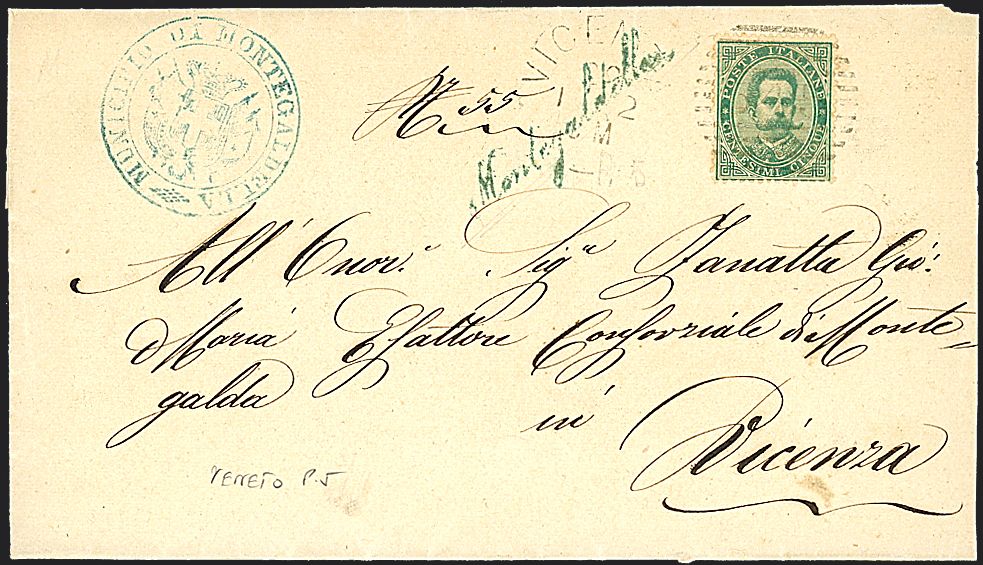 MUNICIPIO DI MONTEGALDELLA
N. 55
Montegaldella
VICENZA
POSTE ITALIANE
CENTESIMI CINQUE
All' Onor. Sig.r Zanatta Gio:
Maria Esattore Consorziale di Monte=
galda in
Vicenza
VENETO P.5